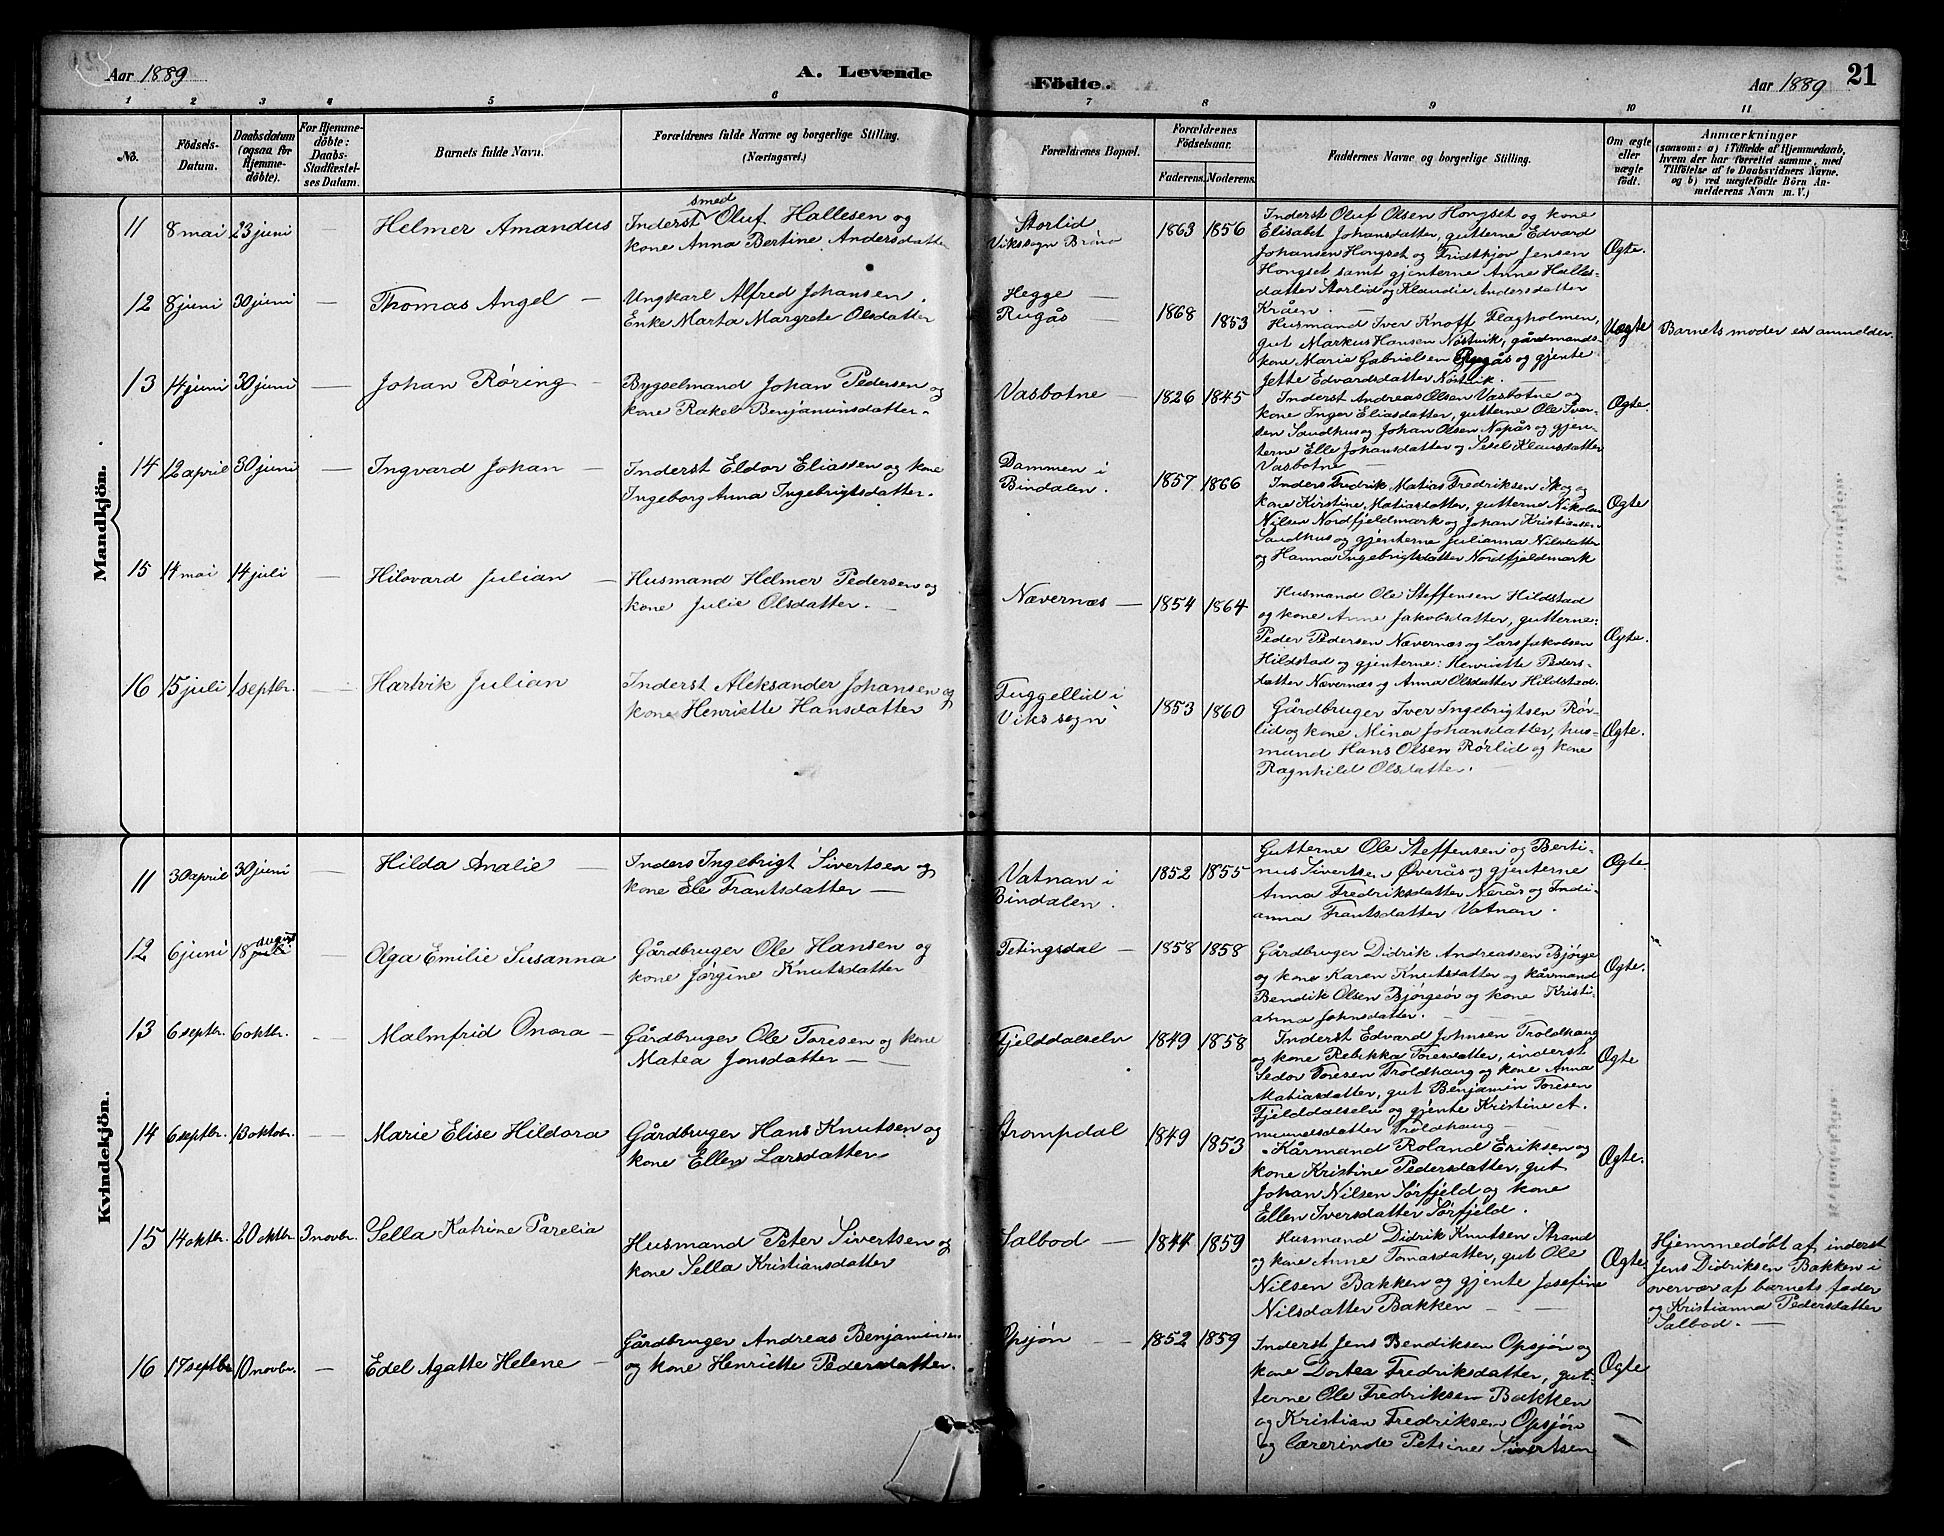 Aar 1889
A. Levende
Födte.
Aar 1889
21
1 2 3 4 5 6 7 8 9 10 11
No.
Födsels-
Datum.
Daabsdatum
(ogsaa for
Hjemme-
döbte).
For Hjemme-
döbte:
Daabs-
Stadfæstel-
ses Datum.
Barnets fulde Navn.
Forældrenes fulde Navne og borgerlige Stilling.
(Næringsvei.)
Forældrenes Bopæl.
Forældrenes
Födselsaar.
Faderens. Moderens.
Faddernes Navne og borgerlige Stilling.
Om ægte
eller
uægte
födt.
Anmærkninger
(saasom: a) i Tilfælde af Hjemmedaab,
hvem der har forrettet samme, med
Tilföielse af to Daabsvidners Navne.
og b) ved uægtefödte Börn An-
melderens Navn m. V.)
Mandkjön.
11 8 mai 23 juni — Helmer Amandus
smed
Inderst Oluf Hallesen og
kone Anna Bertine Andersdatter
Storlid
Vikssogn Brönö
1863 1856
Inderst Oluf Olsen Hongset og kone
Elisabet Johansdatter, gutterne Edvard
Johansen Hongset og Fridthjov Jensen
Hongset samt gjenterne Anne Halles-
datter Storlid og Klaudie Andersdatter
Kråen. —
Ægte.
12 8 juni 30 juni — Thomas Angel —
Ungkarl Alfred Johansen.
Enke Marta Margrete Olsdatter
Hegge —
Rugås —
1868 1853
Husmand Iver Knoff Flagholmen,
gut Markus Hansen Nöstvik, gårdmands-
kone Marie Gabrielsen Rugås og gjente
Jette Edvardsdatter Nöstvik. —
Uægte
Barnets moder er anmelder.
13 14 juni 30 juni — Johan Røring —
Bygselmand Johan Pedersen og
kone Rakel Benjaminsdatter.
Vasbotne —
1826 1845
Inderst Andreas Olsen Vasbotne og
kone Inger Eliasdatter, gutterne Ole Iver-
sen Sandhus og Johan Olsen Nepås og gjen-
terne Elle Johansdatter og Sesel Klausdatter
Vasbotne —
Ægte.
14 12 april 30 juni — Ingvard Johan —
Inderst Eldor Eliassen og kone
Ingeborg Anna Ingebrigtsdatter.
Dammen i
Bindalen.
1857 1866
Inderst Fredrik Matias Fredriksen Skog og
kone Kirstine Matiasdatter, gutterne Nikolai
Nilsen Nordfjeldmark og Johan Kristiansen
Sandhus og gjenterne Julianna Nilsdatter
og Hanna Ingebrigtsdatter Nordfjeldmark
Ægte
15 14 mai 14 juli — Hilovard Julian —
Husmand Helmer Pedersen og
kone Julie Olsdatter. —
Nævernæs —
1854 1864
Husmand Ole Steffensen Hildstad
og kone Anne Jakobsdatter, gutterne:
Peder Pedersen Nævernæs og Lars Jakobsen
Hildstad og gjenterne: Henriette Peders-
datter Nævernæs og Anna Olsdatter Hildstad.
Ægte.
16 15 juli 1 septbr. — Hartvik Julian
Inderst Aleksander Johansen og
kone Henriette Hansdatter
Fuggellid i
Vikssogn
1853 1860
Gårdbruger Iver Ingebrigtsen Rør-
lid og kone Mina Johansdatter, hus-
mand Hans Olsen Rørlid og kone
Ragnhild Olsdatter. —
Ægte.
Kvindekjön.
11 30 april 30 juni Hilda Analie —
Inders Ingebrigt Sivertsen og
kone Ele Frantsdatter —
Vatnan i
Bindalen.
1852 1855
Gutterne Ole Steffensen og Berti-
nus Sivertsen Øverås og gjenterne
Anna Fredriksdatter Nerås og Indi-
anna Frantsdatter Vatnan.
Ægte
12 6 juni 18 august — Olga Emilie Susanna
Gårdbruger Ole Hansen og
kone Jørgine Knutsdatter
Tetingsdal —
1858 1858
Gårdbruger Didrik Andreassen Bjørge
og kone Karen Knutsdatter og kårmand
Bendik Olsen Bjørgeör og kone Kristi-
anna Johnsdatter. — —
Ægte.
13 6 septbr. 6 oktbr. — Malmfrid Onora —
Gårdbruger Ole Toresen og kone
Matea Jonsdatter —
Fjelddalselv
1849 1858
Inderst Edvard Johnsen Troldhaug
og kone Rebikka Toresdatter, inderst
Sedor Toresen Troldhaug og kone Anna
Matiasdatter, gut Benjamin Toresen
Fjelddalselv og gjente Kristine A.
mundsdatter Troldhaug —
Ægte
14 6 septbr. 13 oktobr. — Marie Elise Hildora
Gårdbruger Hans Knutsen og
kone Ellen Larsdatter
Strompdal
1849 1853
Kårmand Roland Eriksen og
kone Kristine Pedersdatter, gut
Johan Nilsen Sørfjeld og kone
Ellen Iversdatter Sørfjeld.
Ægte.
15 14 oktbr. 20 oktbr. 3 novbr. Sella Katrine Parelia
Husmand Peter Sivertsen og
kone Sella Kristiansdatter
Salbod —
1844 1859
Husmand Didrik Knutsen Strand
og kone Anne Tomasdatter, gut Ole
Nilsen Bakken og gjente Josefine
Nilsdatter Bakken — —
Ægte
Hjemmedøbt af inderst
Jens Didriksen Bakken i
overvær af barnets fader
og Kristianna Pedersdatter
Salbod. —
16 17 septbr 10 novbr. — Edel Agatte Helene —
Gårdbruger Andreas Benjaminsen
og kone Henriette Pedersdatter.
Opsjøn —
1852 1859
Inderst Jens Bendiksen Opsjøn og
kone Dortea Fredriksdatter, gut-
terne Ole Fredriksen Bakken
og Kristian Fredriksen Opsjøn
og lærerinde Petsine Sivertsen
Ægte